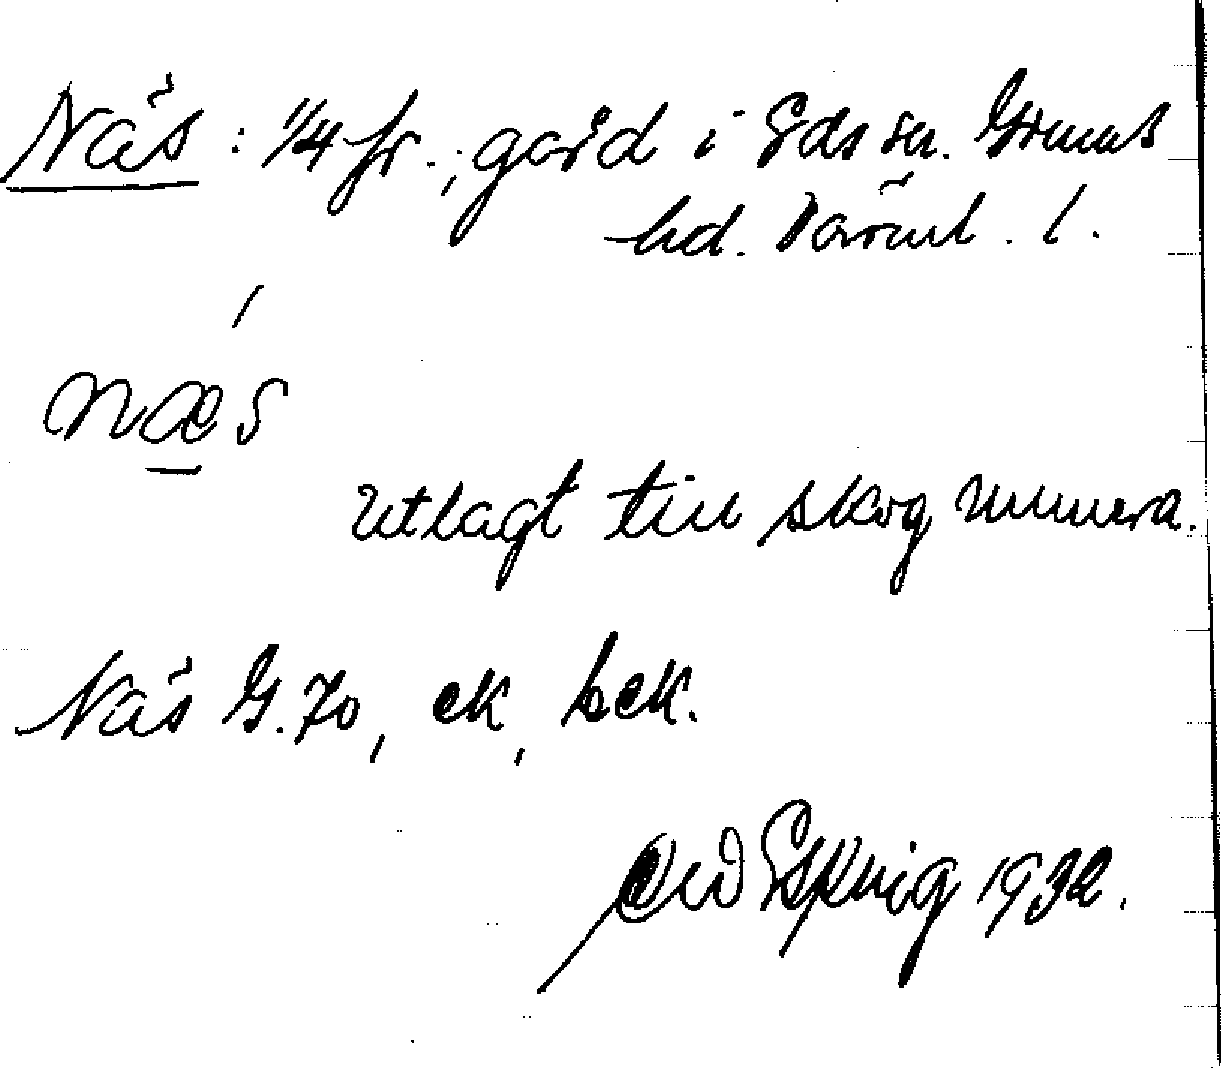 Näs : 1/4 fr., gård i Eds sn. Grums
hd. Värml. l.
næ´s
Utlagt till skog numera.
Näs G. 70, ek, bek.
1932.